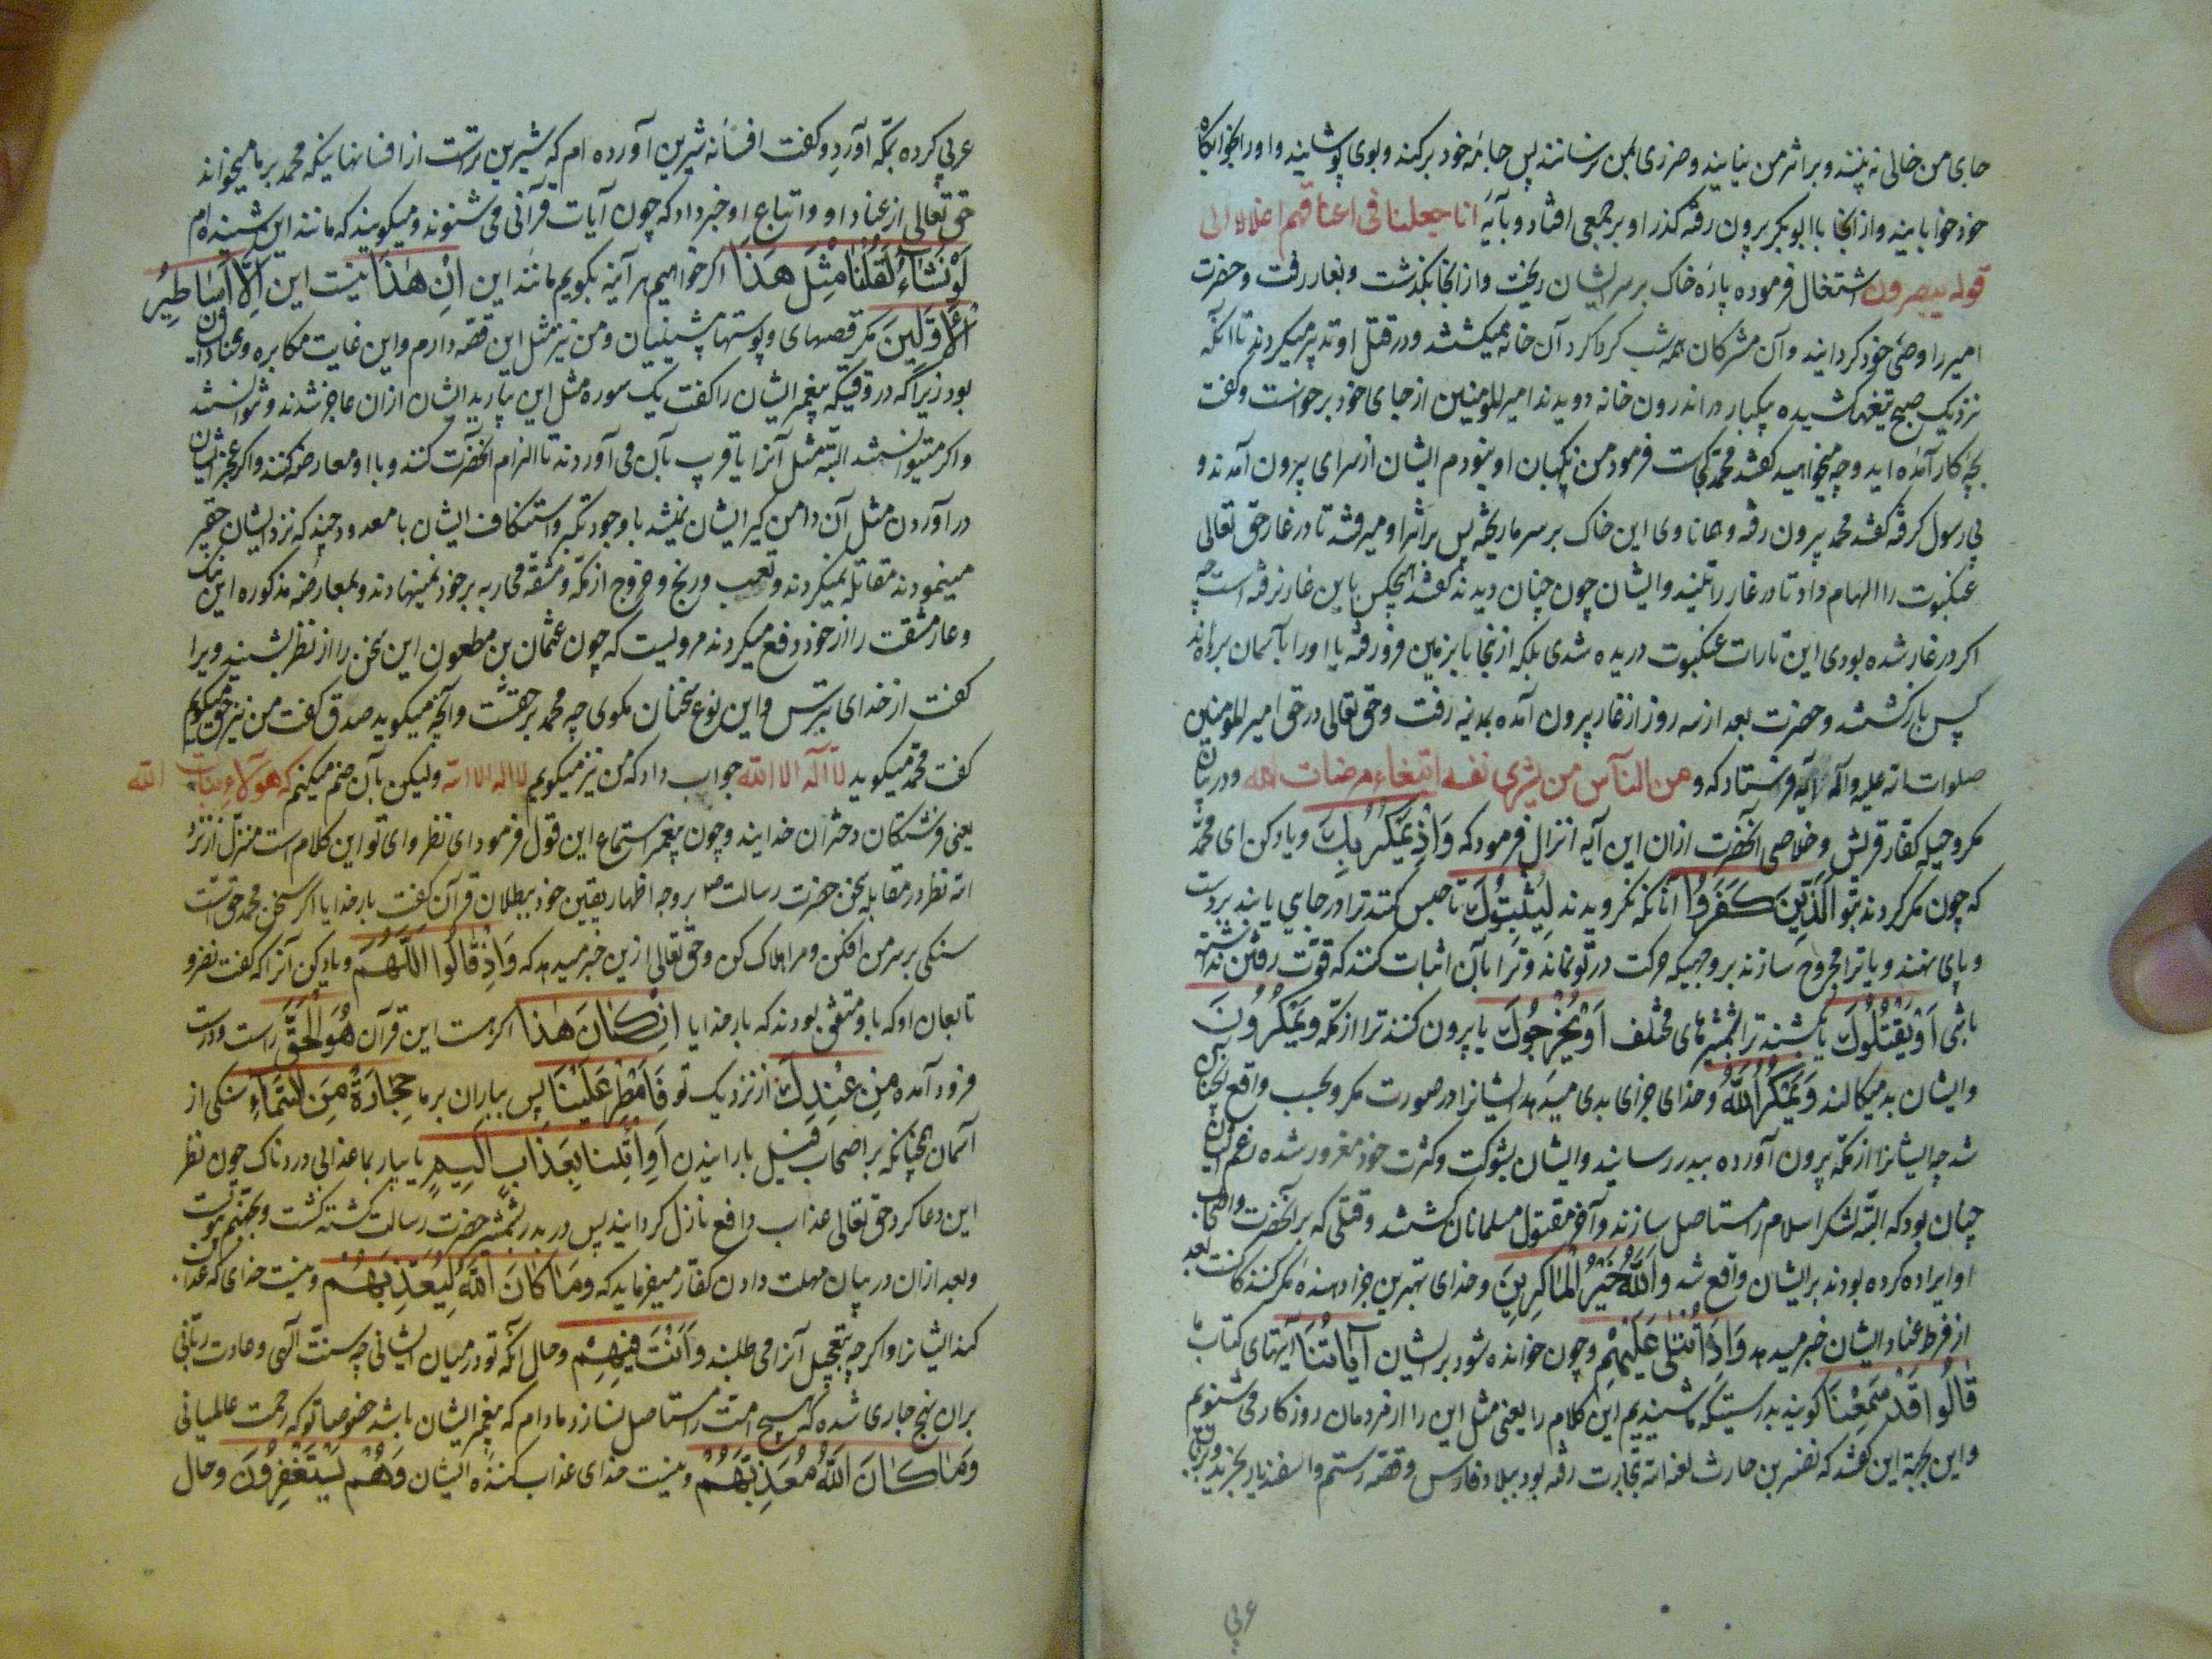 جای من خالی نه بینند و بر اثر من نیایند و ضرری بمن نرسانند پس جامهٔ خود برکند و بوی پوشانید و او را بخوابگاه
خود خوابانید و از آنجا با ابوبکر بیرون رفته گذر او بر جمعی افتاد و بآیهٔ انا جعلنا فی اعناقهم اغلالا الی
قوله یبصرون اشتغال فرموده پارهٔ خاک بر سر ایشان ریخت و از آنجا بگذشت و بغار رفت و حضرت
امیر را وصی خود گردانید و آن مشرکان همه شب گرداگرد آن خانه میگشتند و در قتل او تدبیر میکردند تا آنکه
نزدیک صبح تیغها کشیده بیکبار در اندرون خانه دویدند امیرالمومنین از جای خود برخواست و گفت
بچه کار آمده اید و چه میخواهید گفتند محمد کجاست فرمود من نگهبان او نبودم ایشان از سرای بیرون آمدند و
پی رسول گرفته گفتند محمد بیرون رفته و همانا وی این خاک بر سر ما ریخته پس بر اثر او میرفتند تا در غار حق تعالی
عنکبوت را الهام داد تا در غار را تنید و ایشان چون چنان دیدند گفتند هیچکس باین غار نرفته است چه
اگر در غار شده بودی این تارات عنکبوت دریده شدی بلکه از اینجا یا بزمین فرو رفته یا او را بآسمان برده اند
پس بازگشتند و حضرت بعد از سه روز از غار بیرون آمده بمدینه رفت و حق تعالی در حق امیرالمومنین
صلوات الله علیه و آله آیه فرستاد که و من الناس من یشری نفسه ابتغاء مرضات الله و در بیان
مکر و حیله کفار قریش و خلاصی آنحضرت ازان این آیه انزال فرمود که وَاِذْ یَمْکُرُ بِکَ و یاد کن ای محمد
که چون مکر کردند بتو الَّذِینَ کَفَرُوا آنانکه نگرویدند لِیُثْبِتُوکَ تا حبس کنند ترا در جایی یا بند بر دست
و پای نهند و یا ترا مجروح سازند بر وجهیکه حرکت در تو نماند و ترا بآن اثبات کنند که قوت رفتن نداشته
باشی اَوْ یَقْتُلُوکَ یا بکشند ترا بشمشیرهای مختلف اَوْ یُخْرِجُوکَ یا بیرون کنند ترا از مکه وَیَمْکُرُونَ
و ایشان بد میسکالند وَیَمْکُرُ اللّٰهُ و خدای جزای بدی میدهد ایشانرا در صورت مکر و بحسب واقع
شد چه ایشانرا از مکه بیرون آورده ببدر رسانید و ایشان بشوکت و کثرت خود مغرور شده زعم
چنان بود که البته لشکر اسلام را مستاصل سازند و آخر مقتول مسلمانان گشتند و قتلی که بر آنحضرت و اصحاب
او اراده کرده بودند بر ایشان واقع شد وَاللّٰهُ خَیْرُ الْمَاکِرِینَ و خدای بهترین جزا دهندهٔ مکر کنندکانست بعد
از فرط عناد ایشان خبر میدهد وَاِذَا تُتْلٰی عَلَیْهِمْ و چون خوانده شود بر ایشان آیَاتُنَا آیتهای کتاب ما
قَالُوا قَدْ سَمِعْنَا گویند بدرستیکه ما شنیدیم این کلام را یعنی مثل این را از مردمان روزگار می شنویم
و این بجهة این گفتند که نضر بن حارث لعنه الله بتجارت رفته بود ببلاد فارس و قصه رستم و اسفندیار بخرید و بزبان
عربی
عربی کرده بمکه آورد و گفت افسانه شیرین آورده ام که شیرین تر است از افسانهائیکه محمد بر ما میخواند
حق تعالی از عناد او و اتباع او خبر داد که چون آیات قرآنی می شنوند و میگویند که مانند این شنیده ام
لَوْ نَشَاءُ لَقُلْنَا مِثْلَ هٰذَا اگر خواهیم هر آینه بگویم مانند این اِنْ هٰذَا نیست این اِلَّا اَسَاطِیرُ
الْاَوَّلِینَ مگر قصهای و پوستهای پیشینیان و من نیز مثل این قصه دارم و این غایت مکابره و عناد ایشان
بود زیرا که در وقتیکه پیغمبر ایشان را گفت یک سوره مثل این بیارید ایشان ازان عاجز شدند و نتوانستند
و اگر میتوانستند البته مثل آنرا یا قریب بآن می آوردند تا الزام آنحضرت کنند و با او معارضه کنند و اگر عجز ایشان
در آوردن مثل آن دامن گیر ایشان نمیشد با وجود تکبر و استنکاف ایشان با معدودی چند که نزد ایشان حقیر
مینمودند مقاتله نمیکردند و تعب و رنج و خروج از مکه و مشقه محاربه بر خود نمینهادند و بمعارضه مذکوره این ننگ
و عار مشقت را از خود دفع میکردند مرویست که چون عثمان بن مظعون این سخن را از نظر بشنید ویرا
گفت از خدای بترس و این نوع سخنان مگوی چه محمد برحقست و آنچه میگوید صدق گفت من نیز حق میگویم
گفت محمد میگوید لا اله الا الله جواب داد که من نیز میگویم لا اله الا الله ولیکن بآن ضم میکنم که هولاء بنات الله
یعنی فرشتکان دختران خدایند و چون پیغمبر استماع این قول فرمود ای نظر وای تو این کلام است منزل از نزد
الله نظر در مقابله سخن حضرت رسالت ص بر وجه اظهار یقین خود ببطلان قرآن گفت بار خدایا اگر سخن محمد حق است
سنگی بر سر من افکن و مرا هلاک کن و حق تعالی ازین خبر میدهد که وَاِذْ قَالُوا اللّٰهُمَّ و یاد کن آنرا که گفت نضر و
تابعان او که با او متفق بودند که بار خدایا اِنْ کَانَ هٰذَا اگر هست این قرآن هُوَ الْحَقَّ راست و درست
فرود آمده مِنْ عِنْدِکَ از نزدیک تو فَاَمْطِرْ عَلَیْنَا پس بباران بر ما حِجَارَةً مِنَ السَّمَاءِ سنگی از
آسمان همچنانکه بر اصحاب فیل بارانیدن اَوِ ائْتِنَا بِعَذَابٍ اَلِیمٍ یا بیار بما عذابی دردناک چون نظر
این دعا کرد حق تعالی عذاب واقع نازل گردانید پس در بدر بشمشیر حضرت رسالت کشته گشت و بجهنم پیوست
و بعد ازان در بیان مهلت دادن کفار میفرماید که وَمَا کَانَ اللّٰهُ لِیُعَذِّبَهُمْ و نیست خدای که عذاب
کند ایشانرا و اگر چه بتعجیل آنرا می طلبند وَاَنْتَ فِیهِمْ و حال آنکه تو در میان ایشانی چه سنت الهی و عادت ربانی
بر این نهج جاری شده که هیچ امت را مستاصل نسازد مادام که پیغمبر ایشان باشد خصوصا تو که رحمت عالمیانی
وَمَا کَانَ اللّٰهُ مُعَذِّبَهُمْ و نیست خدای عذاب کنندهٔ ایشان وَهُمْ یَسْتَغْفِرُونَ و حال